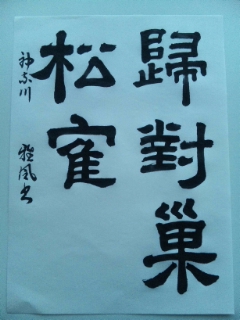 歸對巢
松寉
神奈川 雅風書